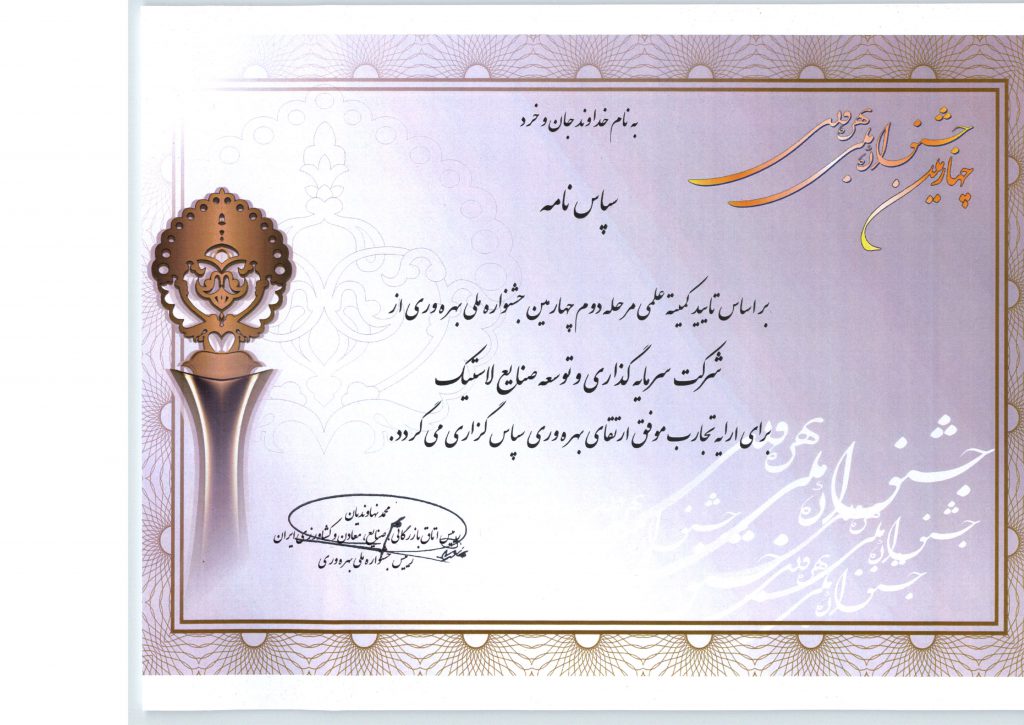 به نام خداوند جان و خرد
چهارمین جشنواره ملی بهره وری
سپاس نامه
بر اساس تایید کمیته علمی مرحله دوم چهارمین جشنواره ملی بهره وری از
شرکت سرمایه گذاری و توسعه صنایع لاستیک
برای ارایه تجارب موفق ارتقای بهره وری سپاس گزاری می گردد.
جشنواره ملی بهره وری
جشنواره ملی بهره وری
جشنواره ملی بهره وری
محمد نهاوندیان
رییس اتاق بازرگانی، صنایع، معادن و کشاورزی ایران
رییس جشنواره ملی بهره وری